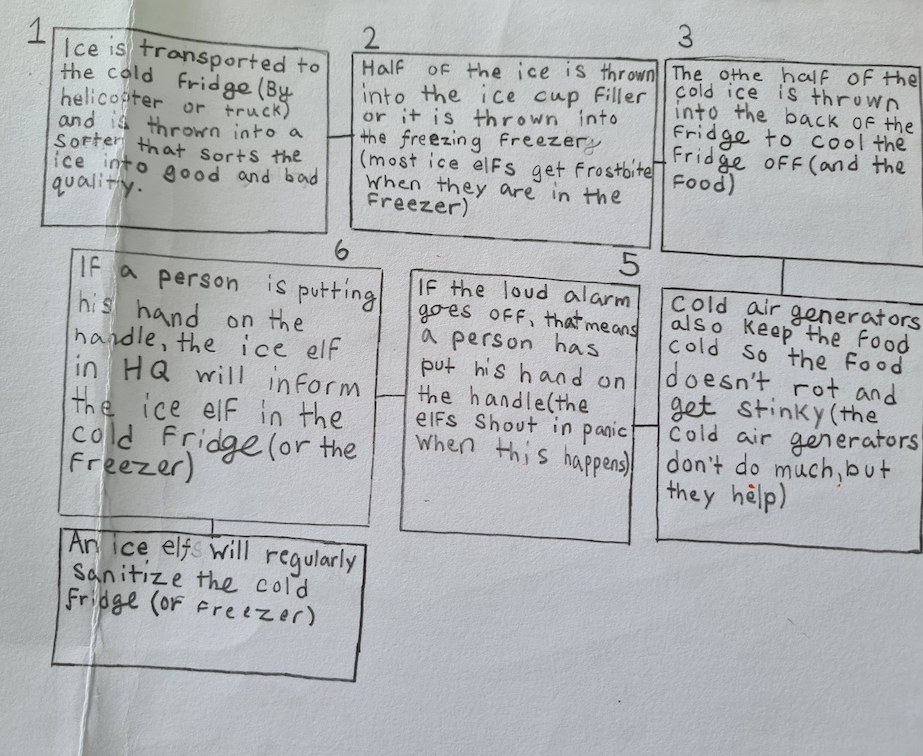 1
Ice is transported to
the cold fridge (By
helicopter or truck)
and is thrown into a
sorter that sorts the
ice into good and bad
quality.
2
Half of the ice is thrown
into the ice cup filler
or it is thrown into
the freezing freezer
(most ice elfs get frostbite
when they are in the
freezer)
3
The othe half of the
cold ice is thrown
into the back of the
fridge to cool the
fridge off (and the
food)
cold air generators
also keep the food
cold so the food
doesn't rot and
get stinky (the
cold air generators
don't do much, but
they help)
5
If the loud alarm
goes off, that means
a person has
put his hand on
the handle (the
elfs shout in panic
when this happens)
6
If a person is putting
his hand on the
handle, the ice elf
in HQ will inform
the ice elf in the
cold fridge (or the
freezer)
An ice elfs will regularly
sanitize the cold
fridge (or freezer)